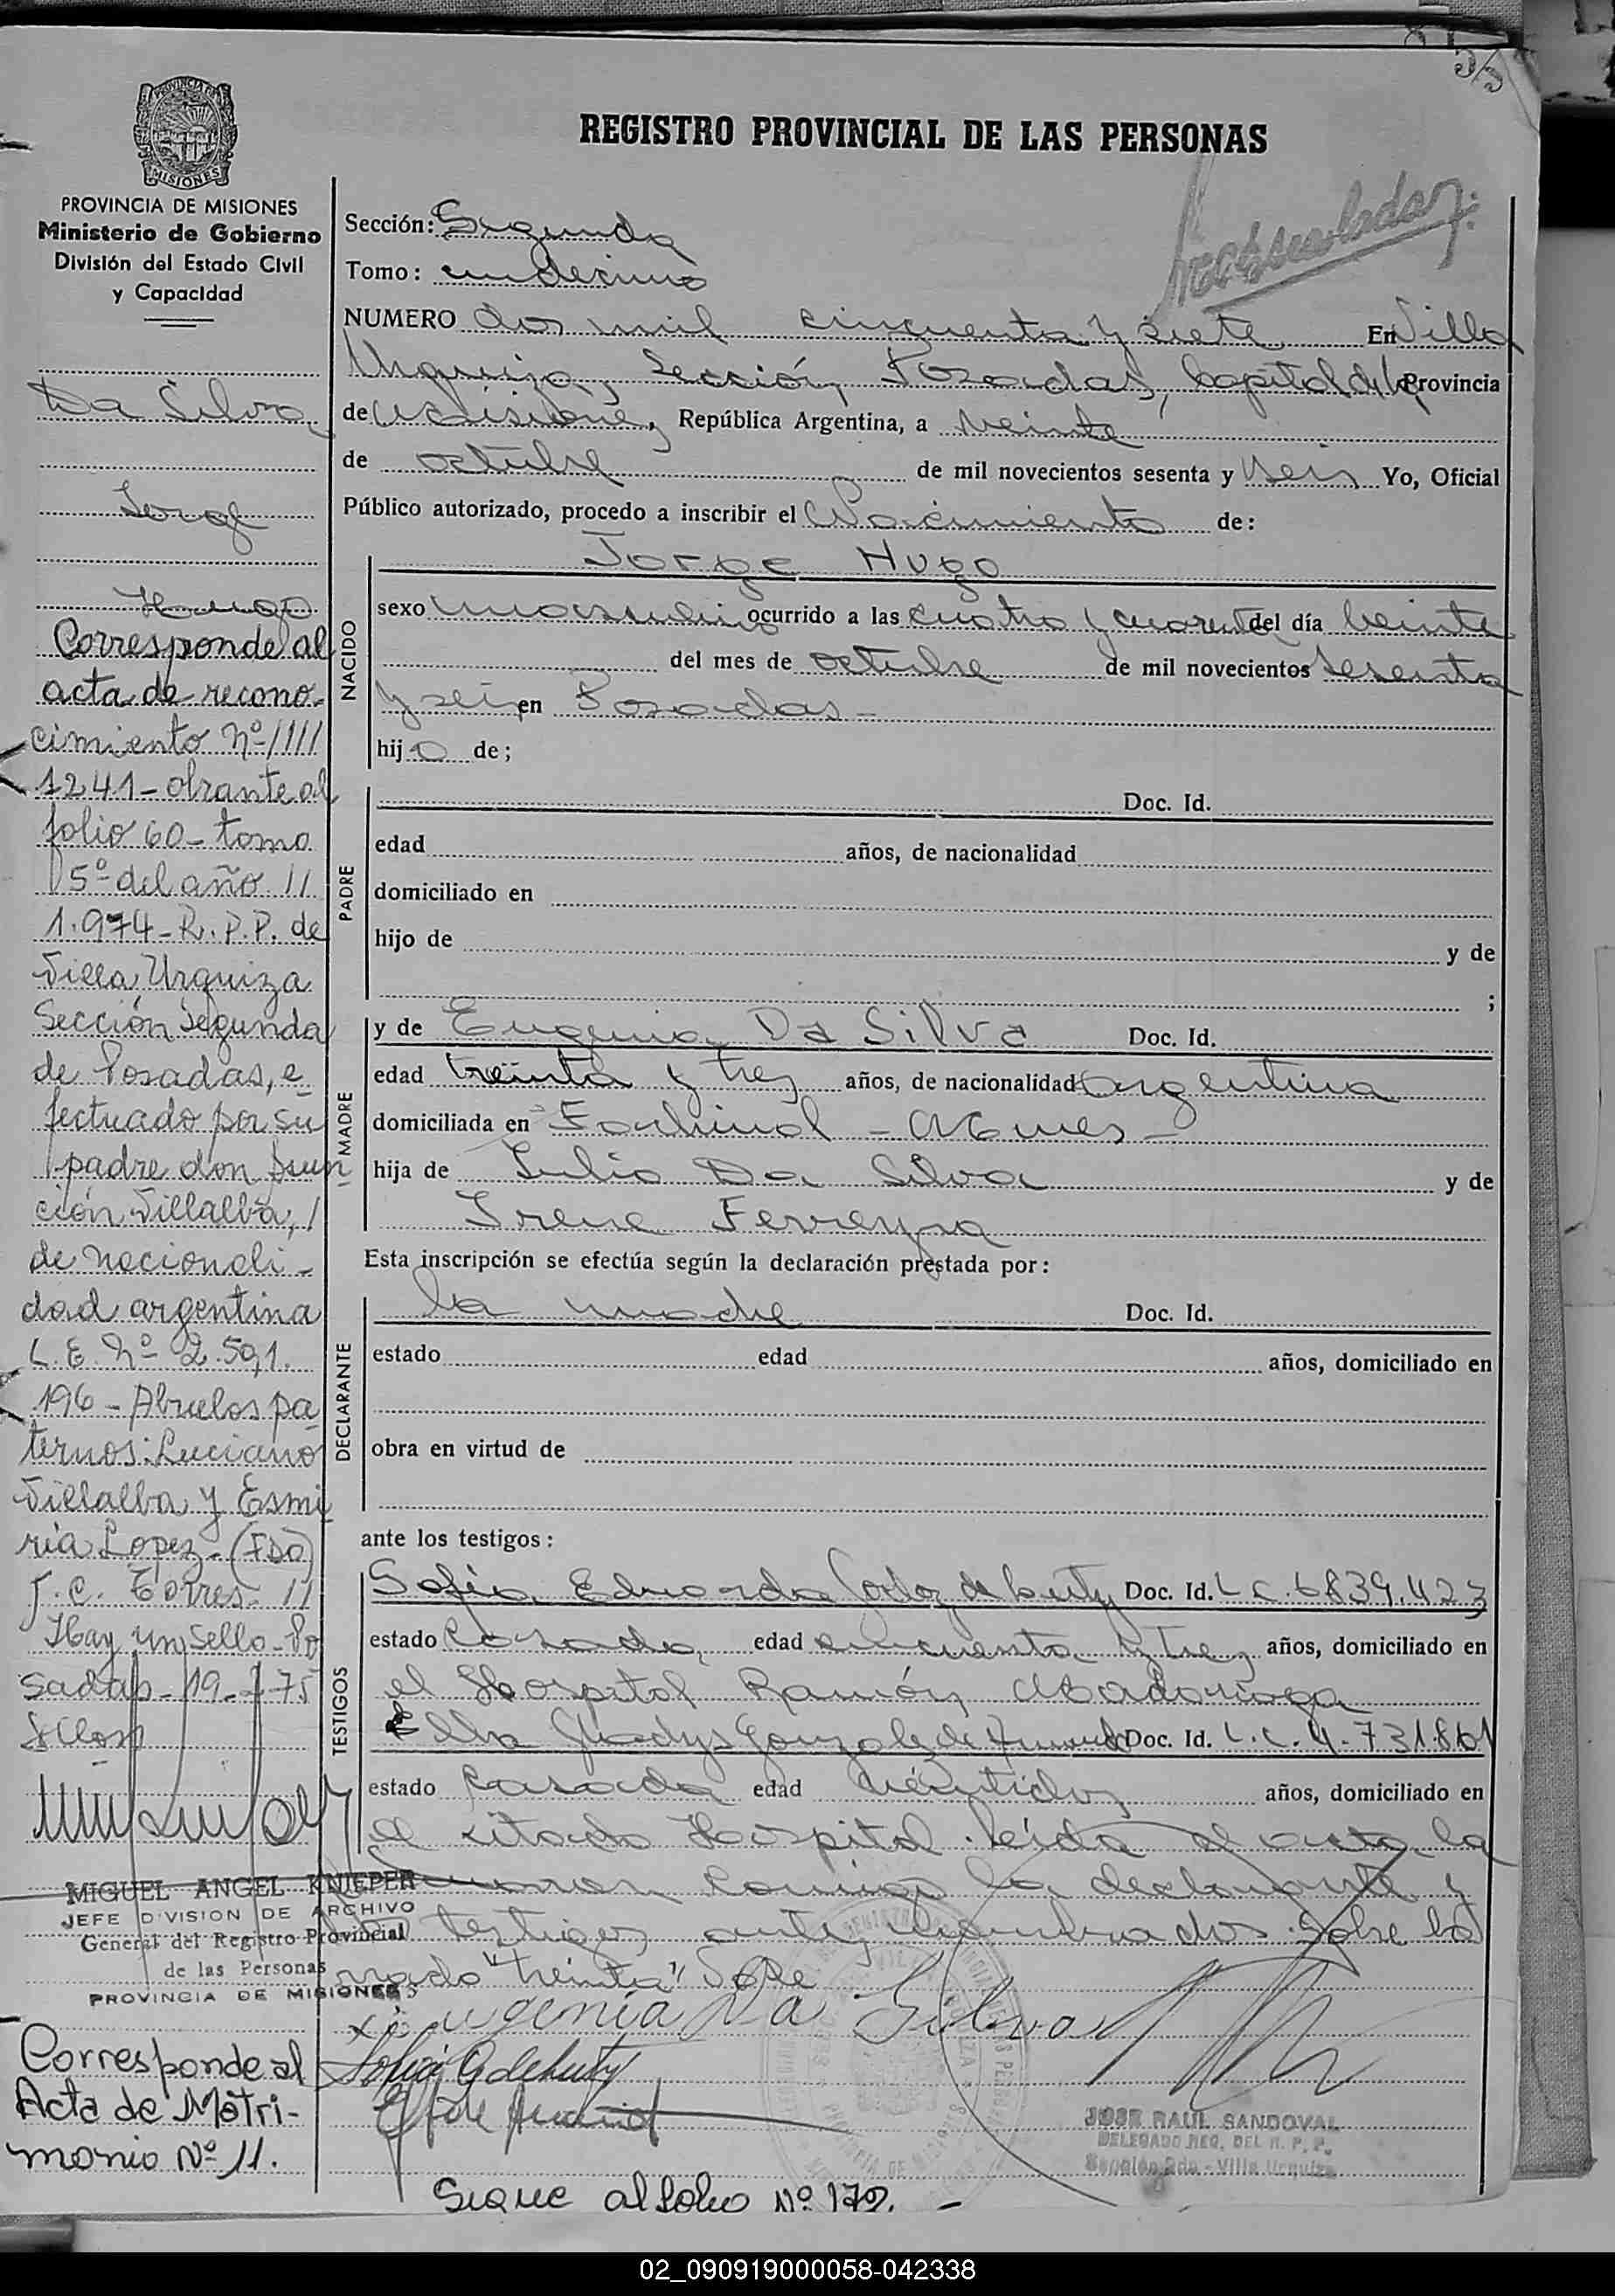 5/5
REGISTRO PROVINCIAL DE LAS PERSONAS
PROVINCIA DE MISIONES
Ministerio de Gobierno
División del Estado Civil
y Capacidad
Da Silva
Jorge
Hugo
Corresponde al
acta de recono-
cimiento Nº ////
1241 - obrante al
folio 60 - tomo
5º del año //
1.974 - R.P.P. de
Villa Urquiza
Sección Segunda
de Posadas, e
fectuado por su
padre don Asun
ción Villalba, /
de nacionali-
dad argentina
L.E. Nº 2.591.
196 - Abuelos pa
ternos: Luciano
Villalba y Esmi
ria Lopez - (FDO)
J.C. Torres - //
Hay un sello - Po
sadas - 19-
MIGUEL ANGEL KNIEPER
JEFE DIVISION DE ARCHIVO
General del Registro Provincial
de las Personas
PROVINCIA DE MISIONES
Corresponde al
Acta de Matri-
monio Nº 11.
Sección: Segunda
Tomo: undecimo
NUMERO dos mil cincuenta y siete En Villa
Urquiza, Sección, Posadas, Capital de la Provincia
de Misiones, República Argentina, a veinte
de octubre de mil novecientos sesenta y seis Yo, Oficial
Público autorizado, procedo a inscribir el Nacimiento de:
NACIDO
Jorge Hugo
sexo masculino ocurrido a las cuatro y cuarenta del día veinte
del mes de octubre de mil novecientos sesenta
y seis en Posadas -
hijo de;
PADRE
Doc. Id.
edad años, de nacionalidad
domiciliado en
hijo de y de
;
MADRE
y de Eugenia Da Silva Doc. Id.
edad treinta y tres años, de nacionalidad argentina
domiciliada en Fachinal - Mnes -
hija de Julio Da Silva y de
Irene Ferreyra
Esta inscripción se efectúa según la declaración prestada por:
DECLARANTE
la madre Doc. Id.
estado edad años, domiciliado en
obra en virtud de
ante los testigos:
TESTIGOS
Sofia Eduarda Godoy de Doc. Id. L C. 6839.423
estado Casada, edad cincuenta y tres años, domiciliado en
el Hospital Ramón Madariaga
Elba Gladys Gonzalez de Doc. Id. L.C. 4.731.861
estado Casada edad veintidos años, domiciliado en
el citado Hospital. Leída el acta la
firmaron conmigo la declarante y
los testigos antes nombrados. Sobre bo
rrado "treinta" Vale
Eugenia Da Silva
JOSE RAUL SANDOVAL
DELEGADO REG. DEL R. P. P.
Sección 2da - Villa Urquiza
Sigue al folio Nº 179. -
02_090919000058-042338